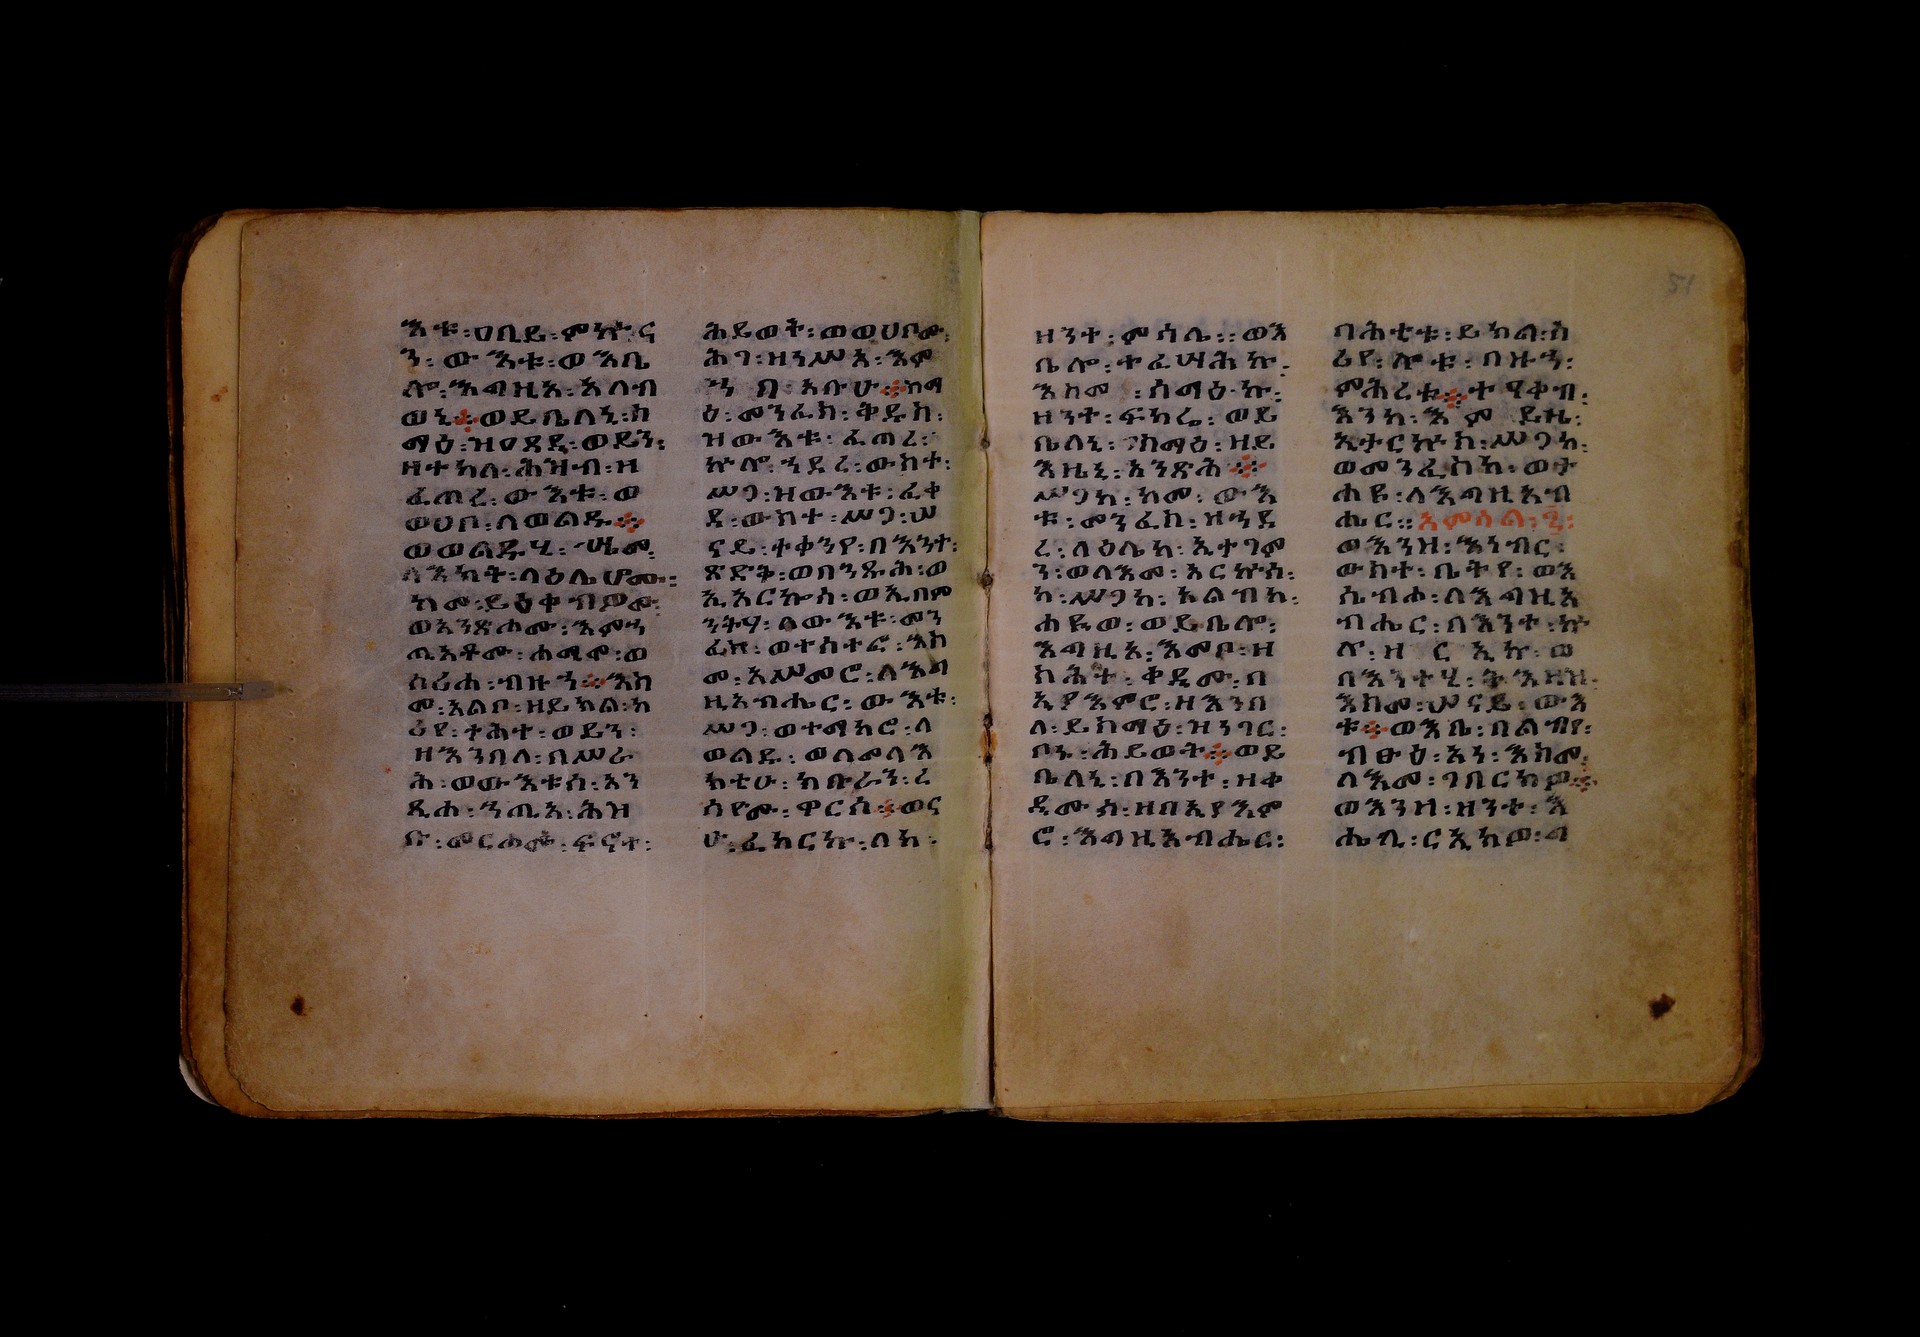 እቱ፡ዐቢይ፡ምኵና
ን፡ውእቱ፡ወእቤ
ሎ፡እግዚአ፡አለብ
ወኒ፨ወይቤለኒ፡ስ
ማዕ፡ዝዐጸደ፡ወይን፡
ዘተከለ፡ሕዝብ፡ዘ
ፈጠረ፡ውእቱ፡ወ
ወሀቦ፡ለወልዱ፨
ወወልዱሂ፡ሤመ፡
ላእክት፡ላዕሌሆሙ፡
ከመ፡ይዕቀብዎሙ፡
ወአንጽሖሙ፡እምኃ
ጢአቶሙ፡ሐሚሞ፡ወ
ሰሪሐ፡ብዙኃ፨እስ
መ፡አልቦ፡ዘይክል፡ከ
ሪየ፡ተሕተ፡ወይን፡
ዘእንበለ፡በሥራ
ሕ፡ወውእቱሰ፡አን
ጺሖ፡ኃጢአ፡ሕዝ
ቡ፡መርሖሙ፡ፍኖተ፡
ሕይወት፡ወወሀቦሙ፡
ሕገ፡ዘነሥአ፡እም
ኀበ፡አቡሁ፨ስማ
ዕ፡መንፈስ፡ቅዱስ፡
ዝውእቱ፡ፈጠረ፡
ኵሎ፡ኀደረ፡ውስተ፡
ሥጋ፡ዝውእቱ፡ፈቀ
ደ፡ውስተ፡ሥጋ፡ሠ
ናይ፡ተቀንየ፡በእንተ፡
ጽድቅ፡ወበንጹሕ፡ወ
ኢአርኰሰ፡ወኢበም
ንትሂ፡ለውእቱ፡መን
ፈስ፡ወተስተሮ፡እስ
መ፡አሥመሮ፡ለእግ
ዚአብሔር፡ውእቱ፡
ሥጋ፡ወተማከሮ፡ለ
ወልዱ፡ወለመላእ
ክቲሁ፡ክቡራን፡ረ
ሰየሙ፡ዋርሰ፨ወና
ሁ፡ፈከርኩ፡ለከ፡
ዘንተ፡ምሳሌ።ወእ
ቤሎ፡ተፈሣሕኩ፡
እስመ፡ሰማዕኩ፡
ዘንተ፡ፍካሬ፡ወይ
ቤለኒ፡ስማዕ፡ዘይ
እዜኒ፡አንጽሕ፨
ሥጋከ፡ከመ፡ውእ
ቱ፡መንፈስ፡ዘኀደ
ረ፡ላዕሌከ፡ኢተገም
ን፡ወለእመ፡አርኰስ፡
ከ፡ሥጋከ፡አልብከ፡
ሐይወ፡ወይቤሎ፡
እግዚኦ፡እመቦ፡ዘ
ስሕተ፡ቀዲሙ፡በ
ኢያእምሮ፡ዘእንበ
ለ፡ይስማዕ፡ዝነገር፡
ቦኑ፡ሕይወት፨ወይ
ቤለኒ፡በእንተ፡ዘቀ
ዲሙሰ፡ዘበኢያእም
ሮ፡እግዚአብሔር፡
51
ባሕቲቱ፡ይክል፡ሰ
ርየ፡ሎቱ፡በዙኅ፡
ምሕረቱ፨ተሃቀብ፡
እንከ፡እምይዜ፡
ኢታርኵስ፡ሥጋከ፡
ወመንፈስከ፡ወት
ሐዩ፡ለእግዚአብ
ሔር።አምሳል፡፮፡
ወእንዘ፡እነብር፡
ውስተ፡ቤትየ፡ወእ
ሴብሖ፡ለእግዚአ
ብሔር፡በእንተ፡ኵ
ሉ፡ዘርኢኩ፡ወ
በእንተሂ፡ትእዛዝ፡
እስመ፡ሠናይ፡ውእ
ቱ፨ወእቤ፡በልብየ፡
ብፁዕ፡አነ፡እስመ፡
ለእመ፡ገበርክዎ፨
ወእንዘ፡ዘንተ፡እ
ሔሊ፡ርኢክዎ፡ግ